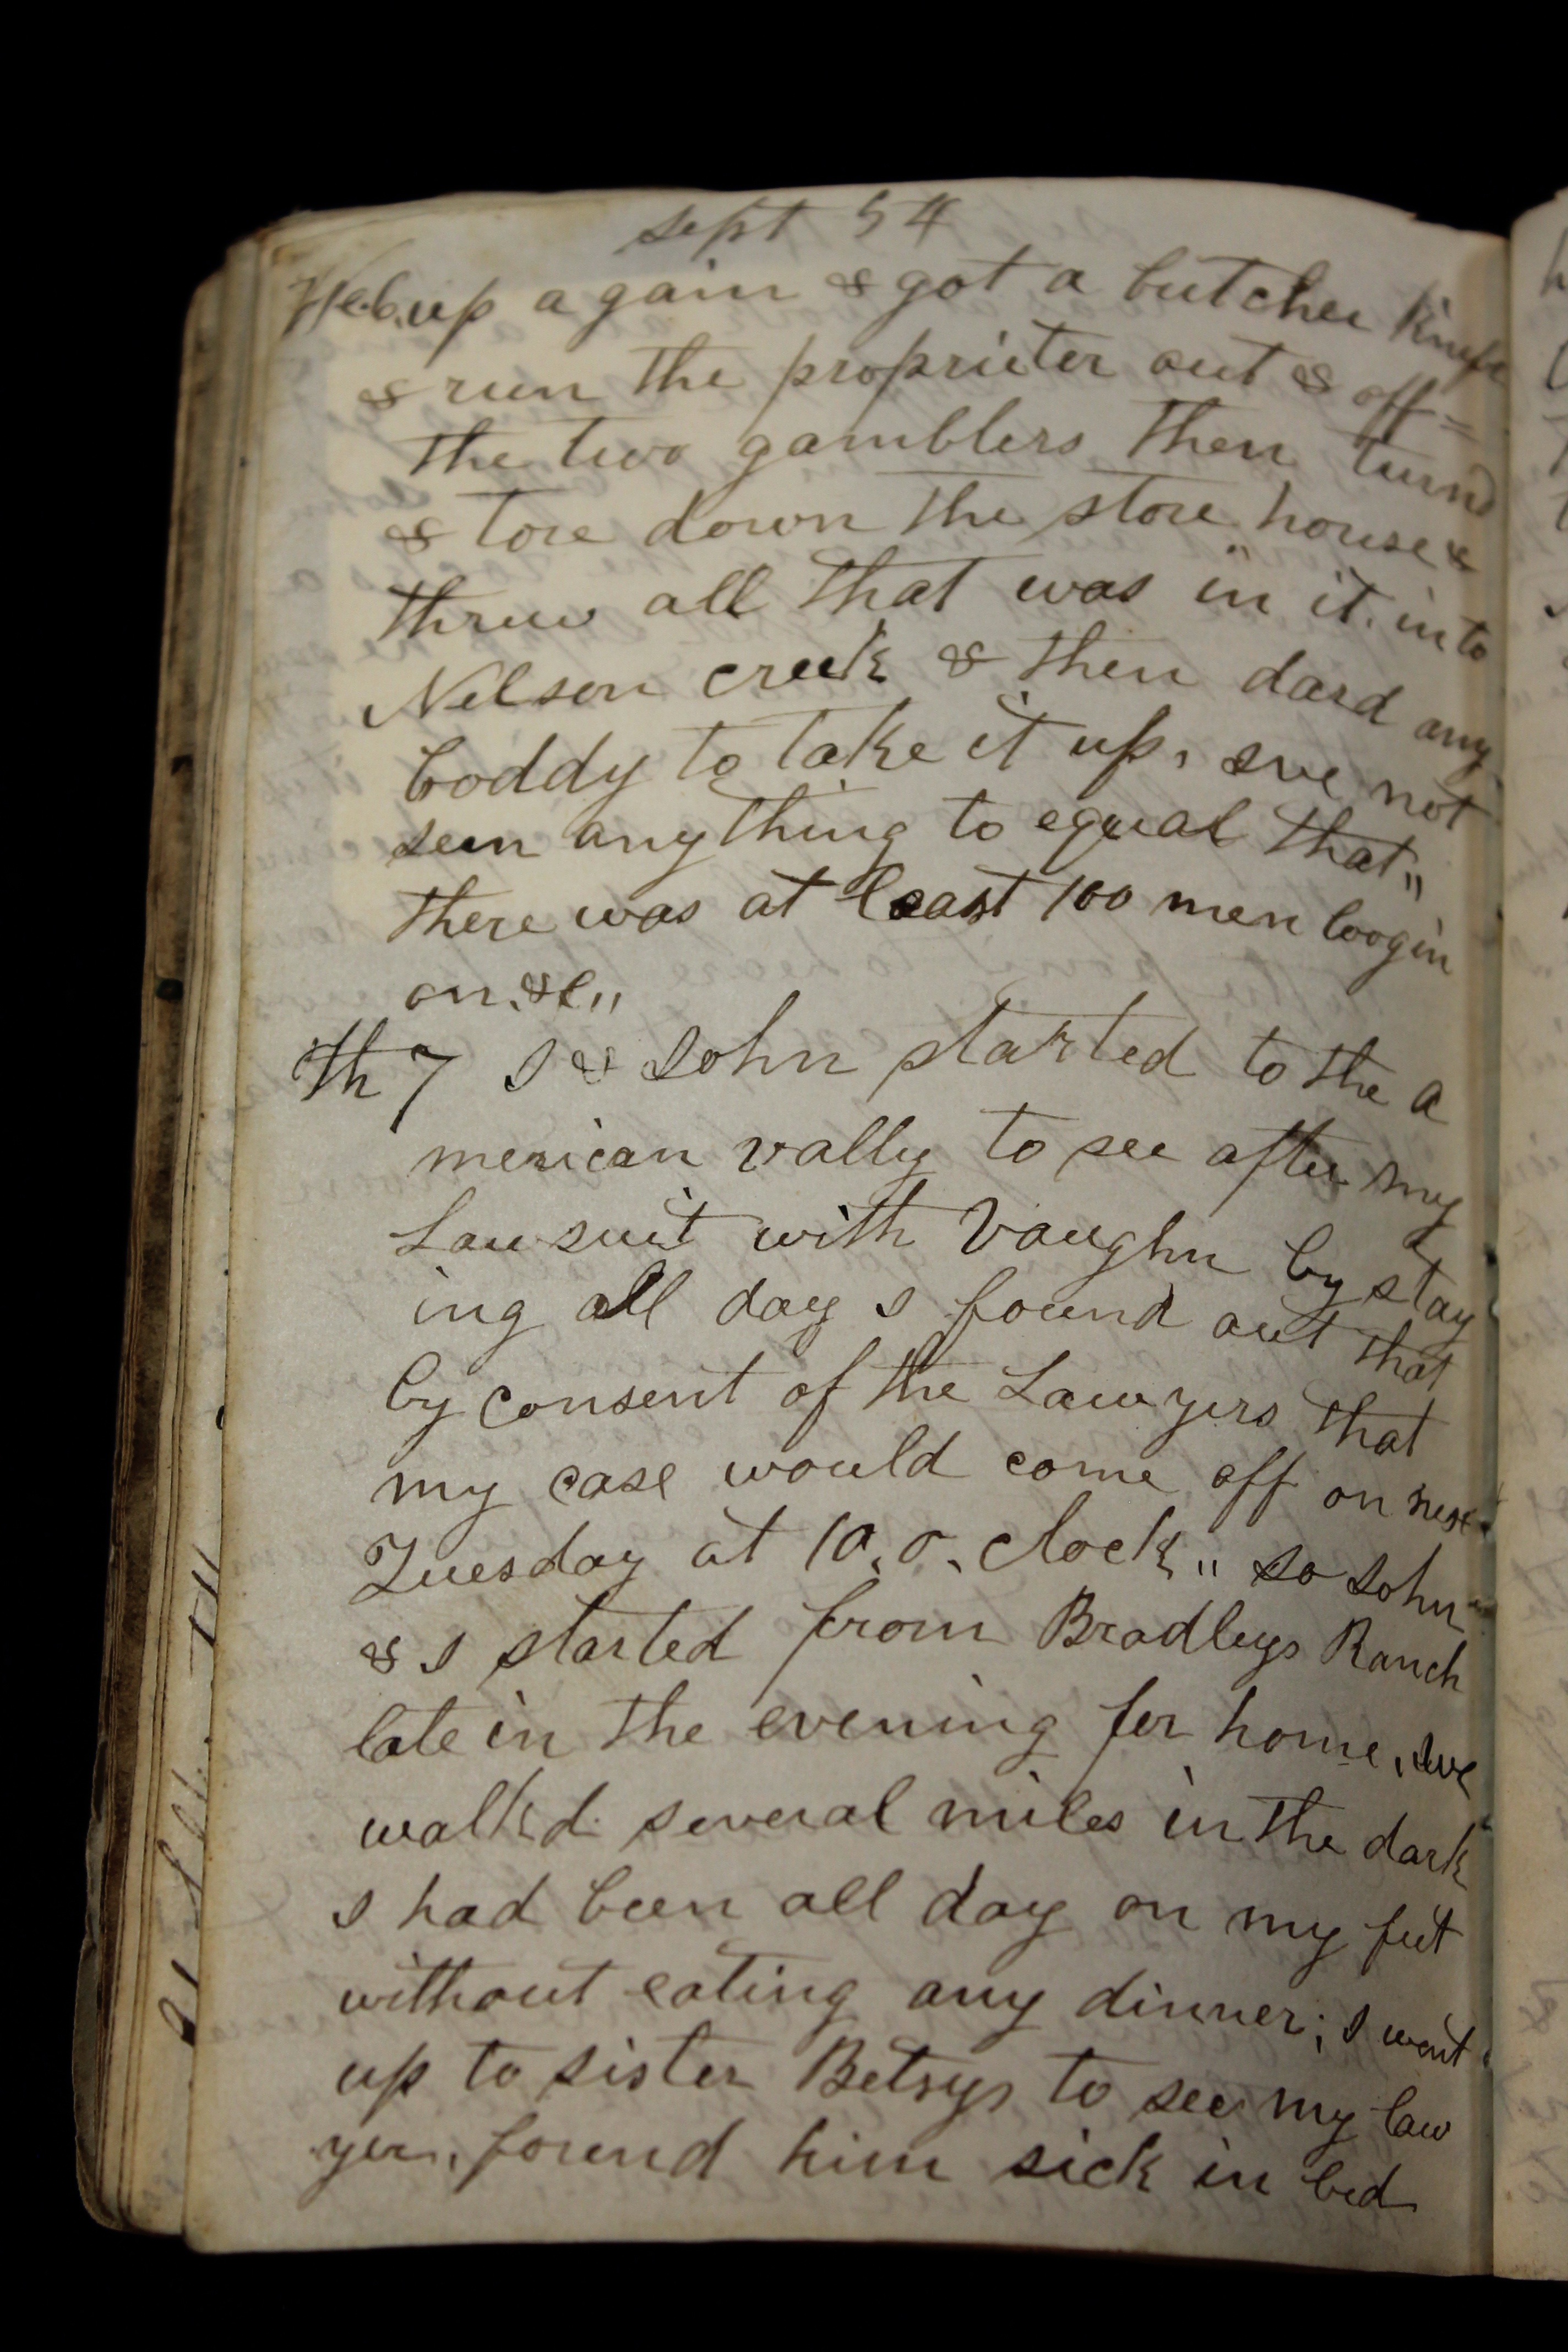 sept 54
Wed. 6. up again & got a butcher knife
& run the proprieter out & off =
the two gamblers then turnd
& tore down the store house &
threw all that was in it. into
Nelson creek & then dard any
boddy to take it up, Ive not
seen anything to equal that"
there was at least 100 men loogin
on. &c"
Th 7 I & John started to the a
merican vally to see after my
Lawsuit with Vaughn by stay
ing all day I found out that
by consent of the Lawyers that
my case would come off on next
Tuesday at 10. o. clock" so John
& I started from Bradleys Ranch
late in the evening for home, we
walkd several miles in the dark
I had been all day on my feet
without eating any dinner; I went
up to sister Betsys to see my law
yer, found him sick in bed